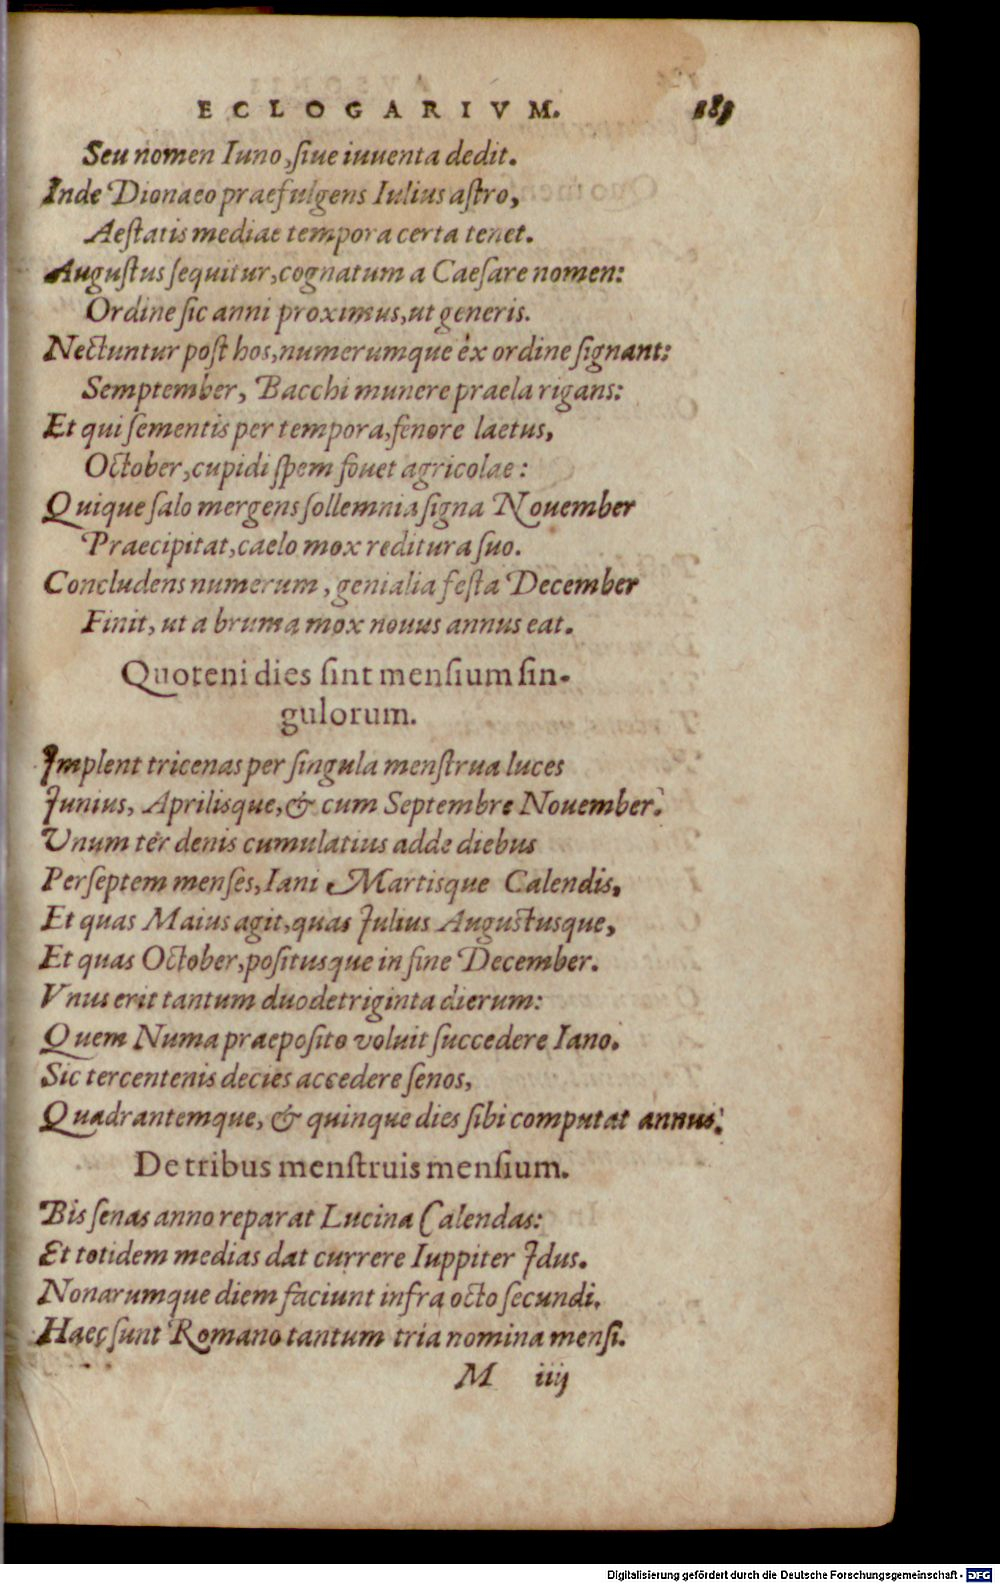 ECLOGARIVM.
Seu nomen Iuno, siue iuuenta dedit.
Inde Dionaeo praefulgens Iulius astro,
Aestatis mediae tempora certa tenet.
Augustus sequitur, cognatum a Caesare nomen:
Ordine sic anni proximus, ut generis.
Nectuntur post hos, numerumque ex ordine signant:
Semptember, Bacchi munere praela rigans:
Et qui sementis per tempora, fenore laetus,
October, cupidi spem fouet agricolae:
Quique salo mergens sollemnia signa Nouember
Praecipitat, caelo mox reditura suo.
Concludens numerum, genialia festa December
Finit, ut a bruma mox nouus annus eat.
Quoteni dies sint mensium sin-
gulorum.
Implent tricenas per singula menstrua luces
Junius, Aprilisque, & cum Septembre Nouember.
Unum ter denis cumulatius adde diebus
Per septem menses, Iani Martisque Calendis,
Et quas Maius agit, quas Julius Augustusque,
Et quas October, positusque in fine December.
Vnus erit tantum duodetriginta dierum:
Quem Numa praeposito voluit succedere Iano.
Sic tercentenis decies accedere senos,
Quadrantemque, & quinque dies sibi computat annus.
De tribus menstruis mensium.
Bis senas anno reparat Lucina Calendas:
Et totidem medias dat currere Iuppiter Jdus.
Nonarumque diem faciunt infra octo secundi.
Haec sunt Romano tantum tria nomina mensi.
M iiij
Digitalisierung gefördert durch die Deutsche Forschungsgemeinschaft - DFG